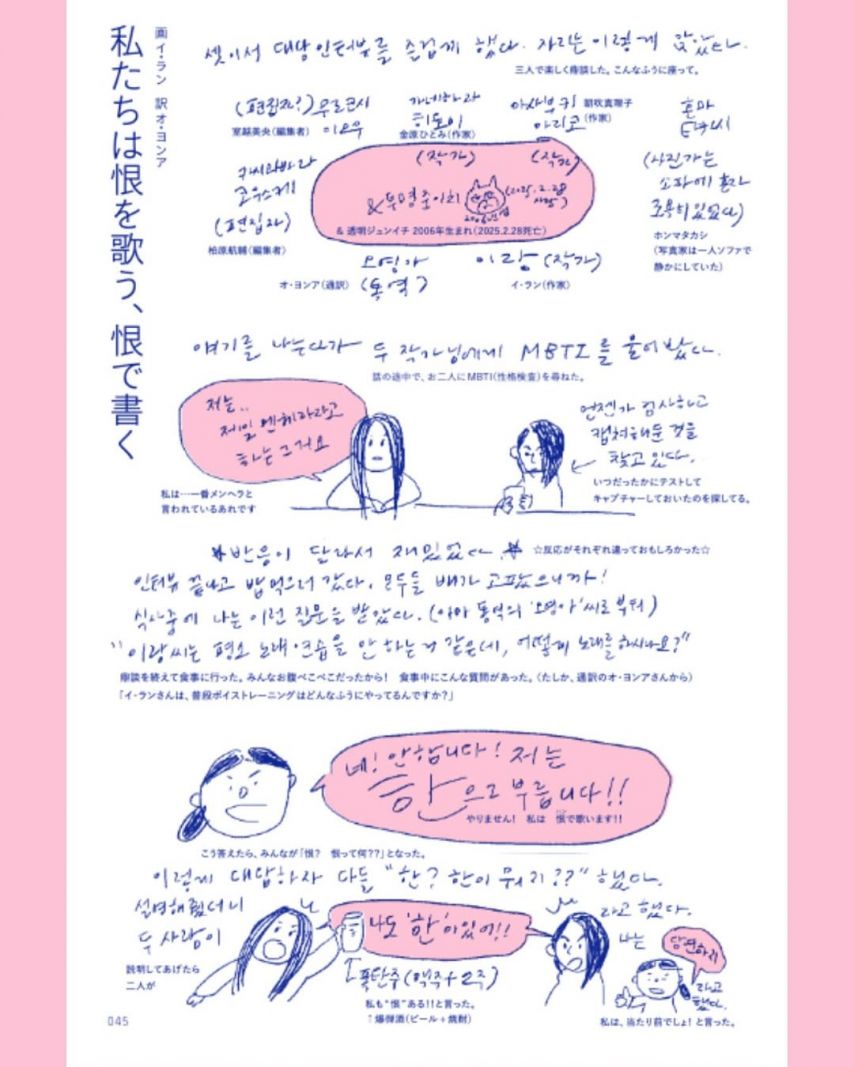 私たちは恨を歌う、恨で書く
画 イ・ラン 訳 オ・ヨンア
셋이서 대담인터뷰를 즐겁게 했다. 자리는 이렇게 앉았다.
三人で楽しく座談した。こんなふうに座って。
(편집자?)
室越美央(編集者)
가네하라
히토미
金原ひとみ(作家)
(작가)
아사부키
마리코
朝吹真理子
(作家)
(작가)
혼마
타카시
(사진가는
소파에 혼자
조용히 있었다)
ホンマタカシ
(写真家は一人ソファで
静かにしていた)
카시와바라
코우스케
(편집자)
柏原航輔(編集者)
&투명준이치
(2025.2.28
사망)
2006년생
& 透明ジュンイチ 2006年生まれ(2025.2.28死亡)
오영아
(통역)
オ・ヨンア(通訳)
이랑 (작가)
イ・ラン(作家)
얘기를 나누다가 두 작가님에게 MBTI를 물어봤다.
話の途中で、お二人にMBTI(性格検査)を尋ねた。
저는..
제일 멘헤라라고
하는 그거요
私は…一番メンヘラと
言われているあれです
언젠가 검사하고
캡처해둔 것을
찾고 있다.
いつだったかにテストして
キャプチャーしておいたのを探してる。
반응이 달라서 재밌었다.
☆反応がそれぞれ違っておもしろかった☆
인터뷰 끝나고 밥먹으러 갔다. 모두들 배가 고팠으니까!
식사중에 나는 이런 질문을 받았다. (아마 통역의 '오영아'씨로부터)
"이랑씨는 평소 노래연습을 안 하는 것 같은데, 어떻게 노래를 하시나요?"
座談を終えて食事に行った。みんなお腹ぺこぺこだったから! 食事中にこんな質問があった。(たしか、通訳のオ・ヨンアさんから)
「イ・ランさんは、普段ボイストレーニングはどんなふうにやってるんですか?」
네! 안합니다! 저는
한으로 부릅니다!!
やりません! 私は 恨で歌います!!
こう答えたら、みんなが「恨? 恨って何??」となった。
이렇게 대답하자 다들 "한? 한이 뭐지??" 했다.
설명해줬더니
두 사람이
説明してあげたら
二人が
나도 '한'이있어!!
라고 했다.
폭탄주(맥주+소주)
私も"恨"ある!!と言った。
↑爆弾酒(ビール+焼酎)
나는
당연하지
라고
했다.
私は、当たり前でしょ! と言った。
045